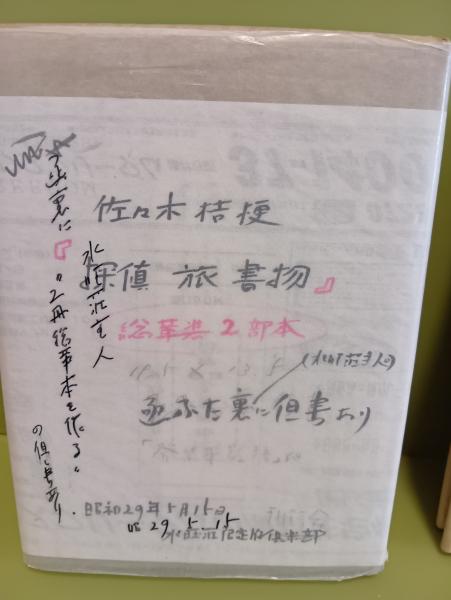 佐々木桔梗
『探偵 旅 書物』
総華装2部本
水曜荘主人
裏に
"2冊総華本を作る"
の但し書あり.
(水曜荘主人の)
裏に但書あり
昭和29年5月15日
昭29.5.15
水曜荘限定版倶楽部